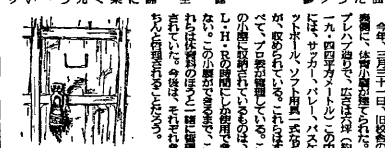 今年、三月二十一日、旧校舎の
裏側に、体育小屋が建てられた。
プレハブ造りで、広さは六坪（約
一九・四平方メートル）この中
には、サッカー、バレー、バスケ
ットボール、ソフト用具一式など
が、収められている。これらはす
べて、プロ委が管理している。こ
の小屋に収納されているものは、
L・H・Rの時間にしか使用でき
ない。この小屋ができるまで、こ
れらは体育科のほうと一緒に管理
されていた。今後は、それぞれき
ちんと管理されることだろう。